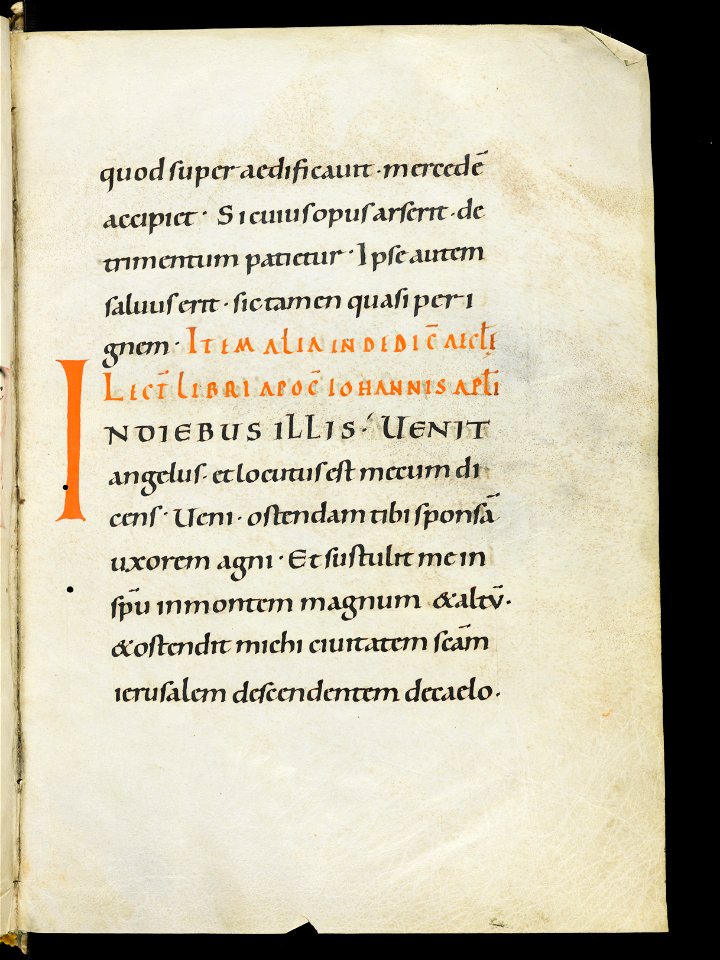 quod super aedificauit · mercedē
accipiet · Si cuius opus arserit · de
trimentum patietur · Ipse autem
saluus erit · sic tamen quasi per i
gnem · ITEM ALIA IN DEDIC̄ AECLĘ
LECT̄ LIBRI APOC̄ IOHANNIS APL̄I
INDIEBUS ILLIS · UENIT
angelus · et locutus est mecum di
cens · Ueni · ostendam tibi sponsā
uxorem agni · Et sustulit me in
sp̄u in montem magnum & altū ·
& ostendit michi ciuitatem sc̄am
ierusalem descendentem decaelo ·